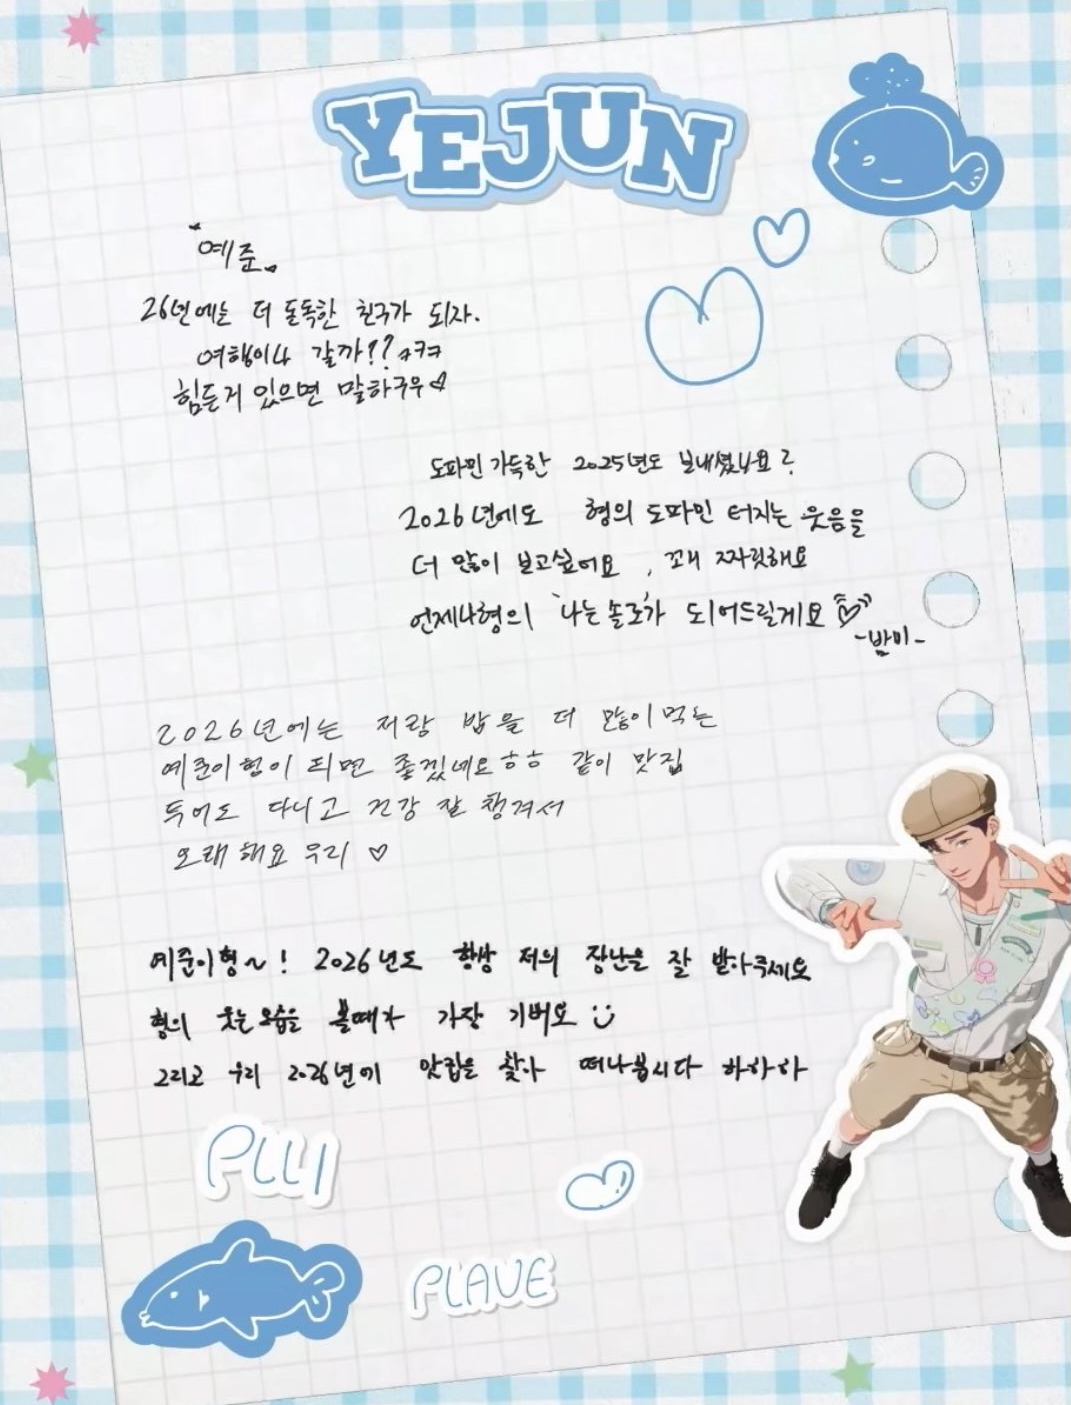 YEJUN
"예준"
26년에는 더 돈독한 친구가 되자.
여행이나 갈까?? ㅋㅋㅋ
힘든게 있으면 말하구우
도파민 가득한 2025년도 보내셨나요?
2026년에도 형의 도파민 터지는 웃음을
더 많이 보고싶어요, 꽤 짜릿해요
언제나 형의 '나는솔로'가 되어드릴게요
-밤비-
2026년에는 저랑 밥을 더 많이 먹는
예준이형이 되면 좋겠네요ㅎㅎ 같이 맛집
투어도 다니고 건강 잘 챙겨서
오래해요 우리 ♡
예준이형~! 2026년도 항상 저의 장난을 잘 받아주세요
형의 웃는모습을 볼때가 가장 기뻐요 :)
그리고 우리 2026년에 맛집을 찾아 떠나봅시다 하하하
PLLI
PLAVE